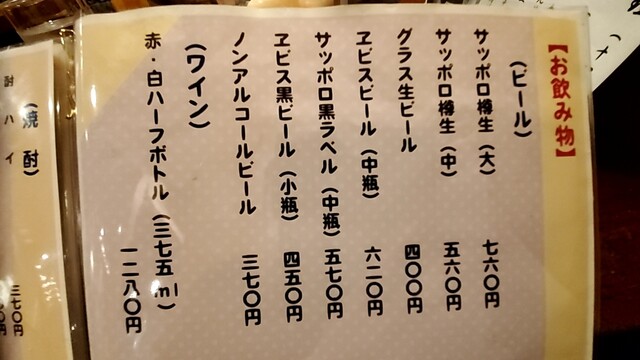 【お飲み物】
(ビール)
サッポロ樽生(大) 七六〇円
サッポロ樽生(中) 五六〇円
グラス生ビール 四〇〇円
ヱビスビール(中瓶) 六二〇円
サッポロ黒ラベル(中瓶) 五七〇円
ヱビス黒ビール(小瓶) 四五〇円
ノンアルコールビール 三七〇円
(ワイン)
赤・白ハーフボトル(三七五ml)
一二八〇円
(焼酎)
酎ハイ 三七〇円